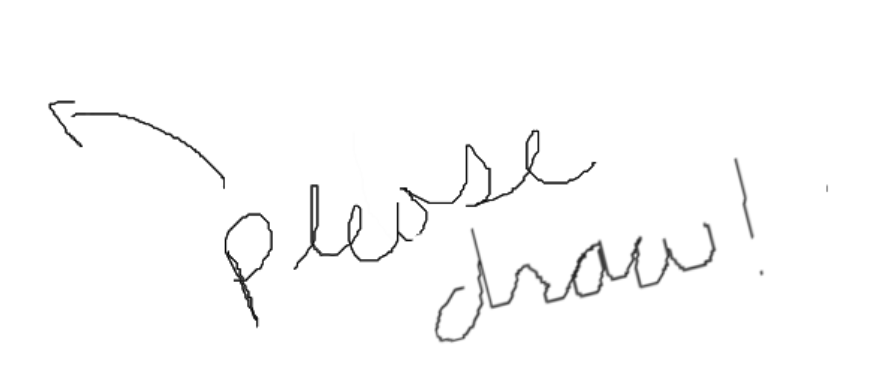 please
draw!